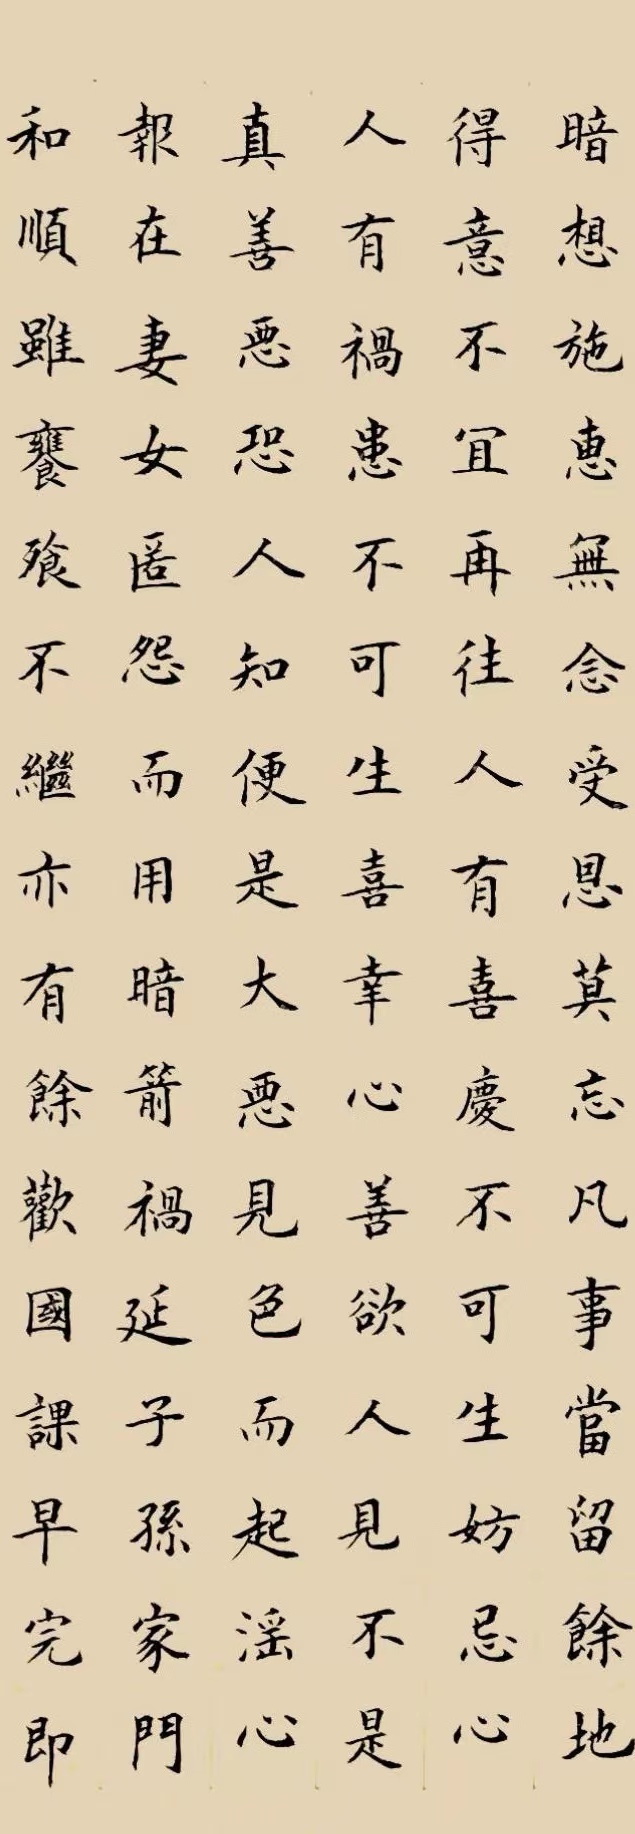 暗想施惠無念受恩莫忘凡事當留餘地
得意不宜再往人有喜慶不可生妨忌心
人有禍患不可生喜幸心善欲人見不是
真善惡恐人知便是大惡見色而起淫心
報在妻女匿怨而用暗箭禍延子孫家門
和順雖饔飱不繼亦有餘歡國課早完即